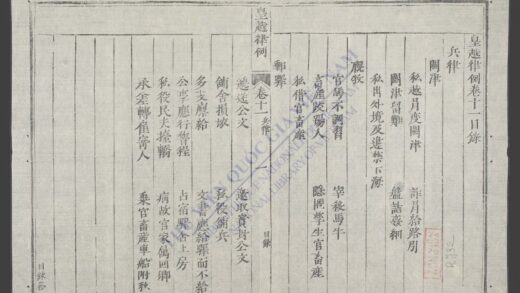 皇越律例卷十一目錄
兵律
關津
私越冒度關津 詐冒給路引
關津留難 盤詰姦細
私出外境及違禁下海
廄牧
官馬不調習 宰殺馬牛
畜產咬踢人 隱匿孳生官畜產
私借官畜產
郵驛
皇越律例 卷十一 兵律 一 目錄
遞送公文 邀取實封公文
鋪舍損壞 私役鋪兵
多支廩給 文書應給驛而不給
公事應行稽程 占宿驛舍上房
私役民夫擡轎 病故官家屬還鄉
承差轉僱寄人 乘官畜產車船附私
THƯ VIỆN QUỐC GIA VIỆT NAM
NATIONAL LIBRARY OF VIETNAM